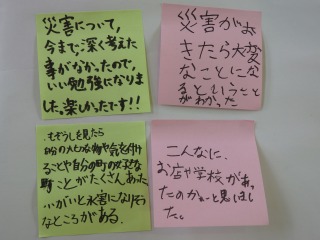 災害について,
今まで深く考えた
事がなかったので,
いい勉強になりま
した。楽しかったです!!
災害がお
きたら大変
なことにな
るということ
がわかった
もぞうしを見たら
自分の
気を付け
ることや自分の町の
ことがたくさんあった
ふがいと水害になりそう
なところがある.
こんなに、
お店や学校があっ
たのかぁーと思いま
した。